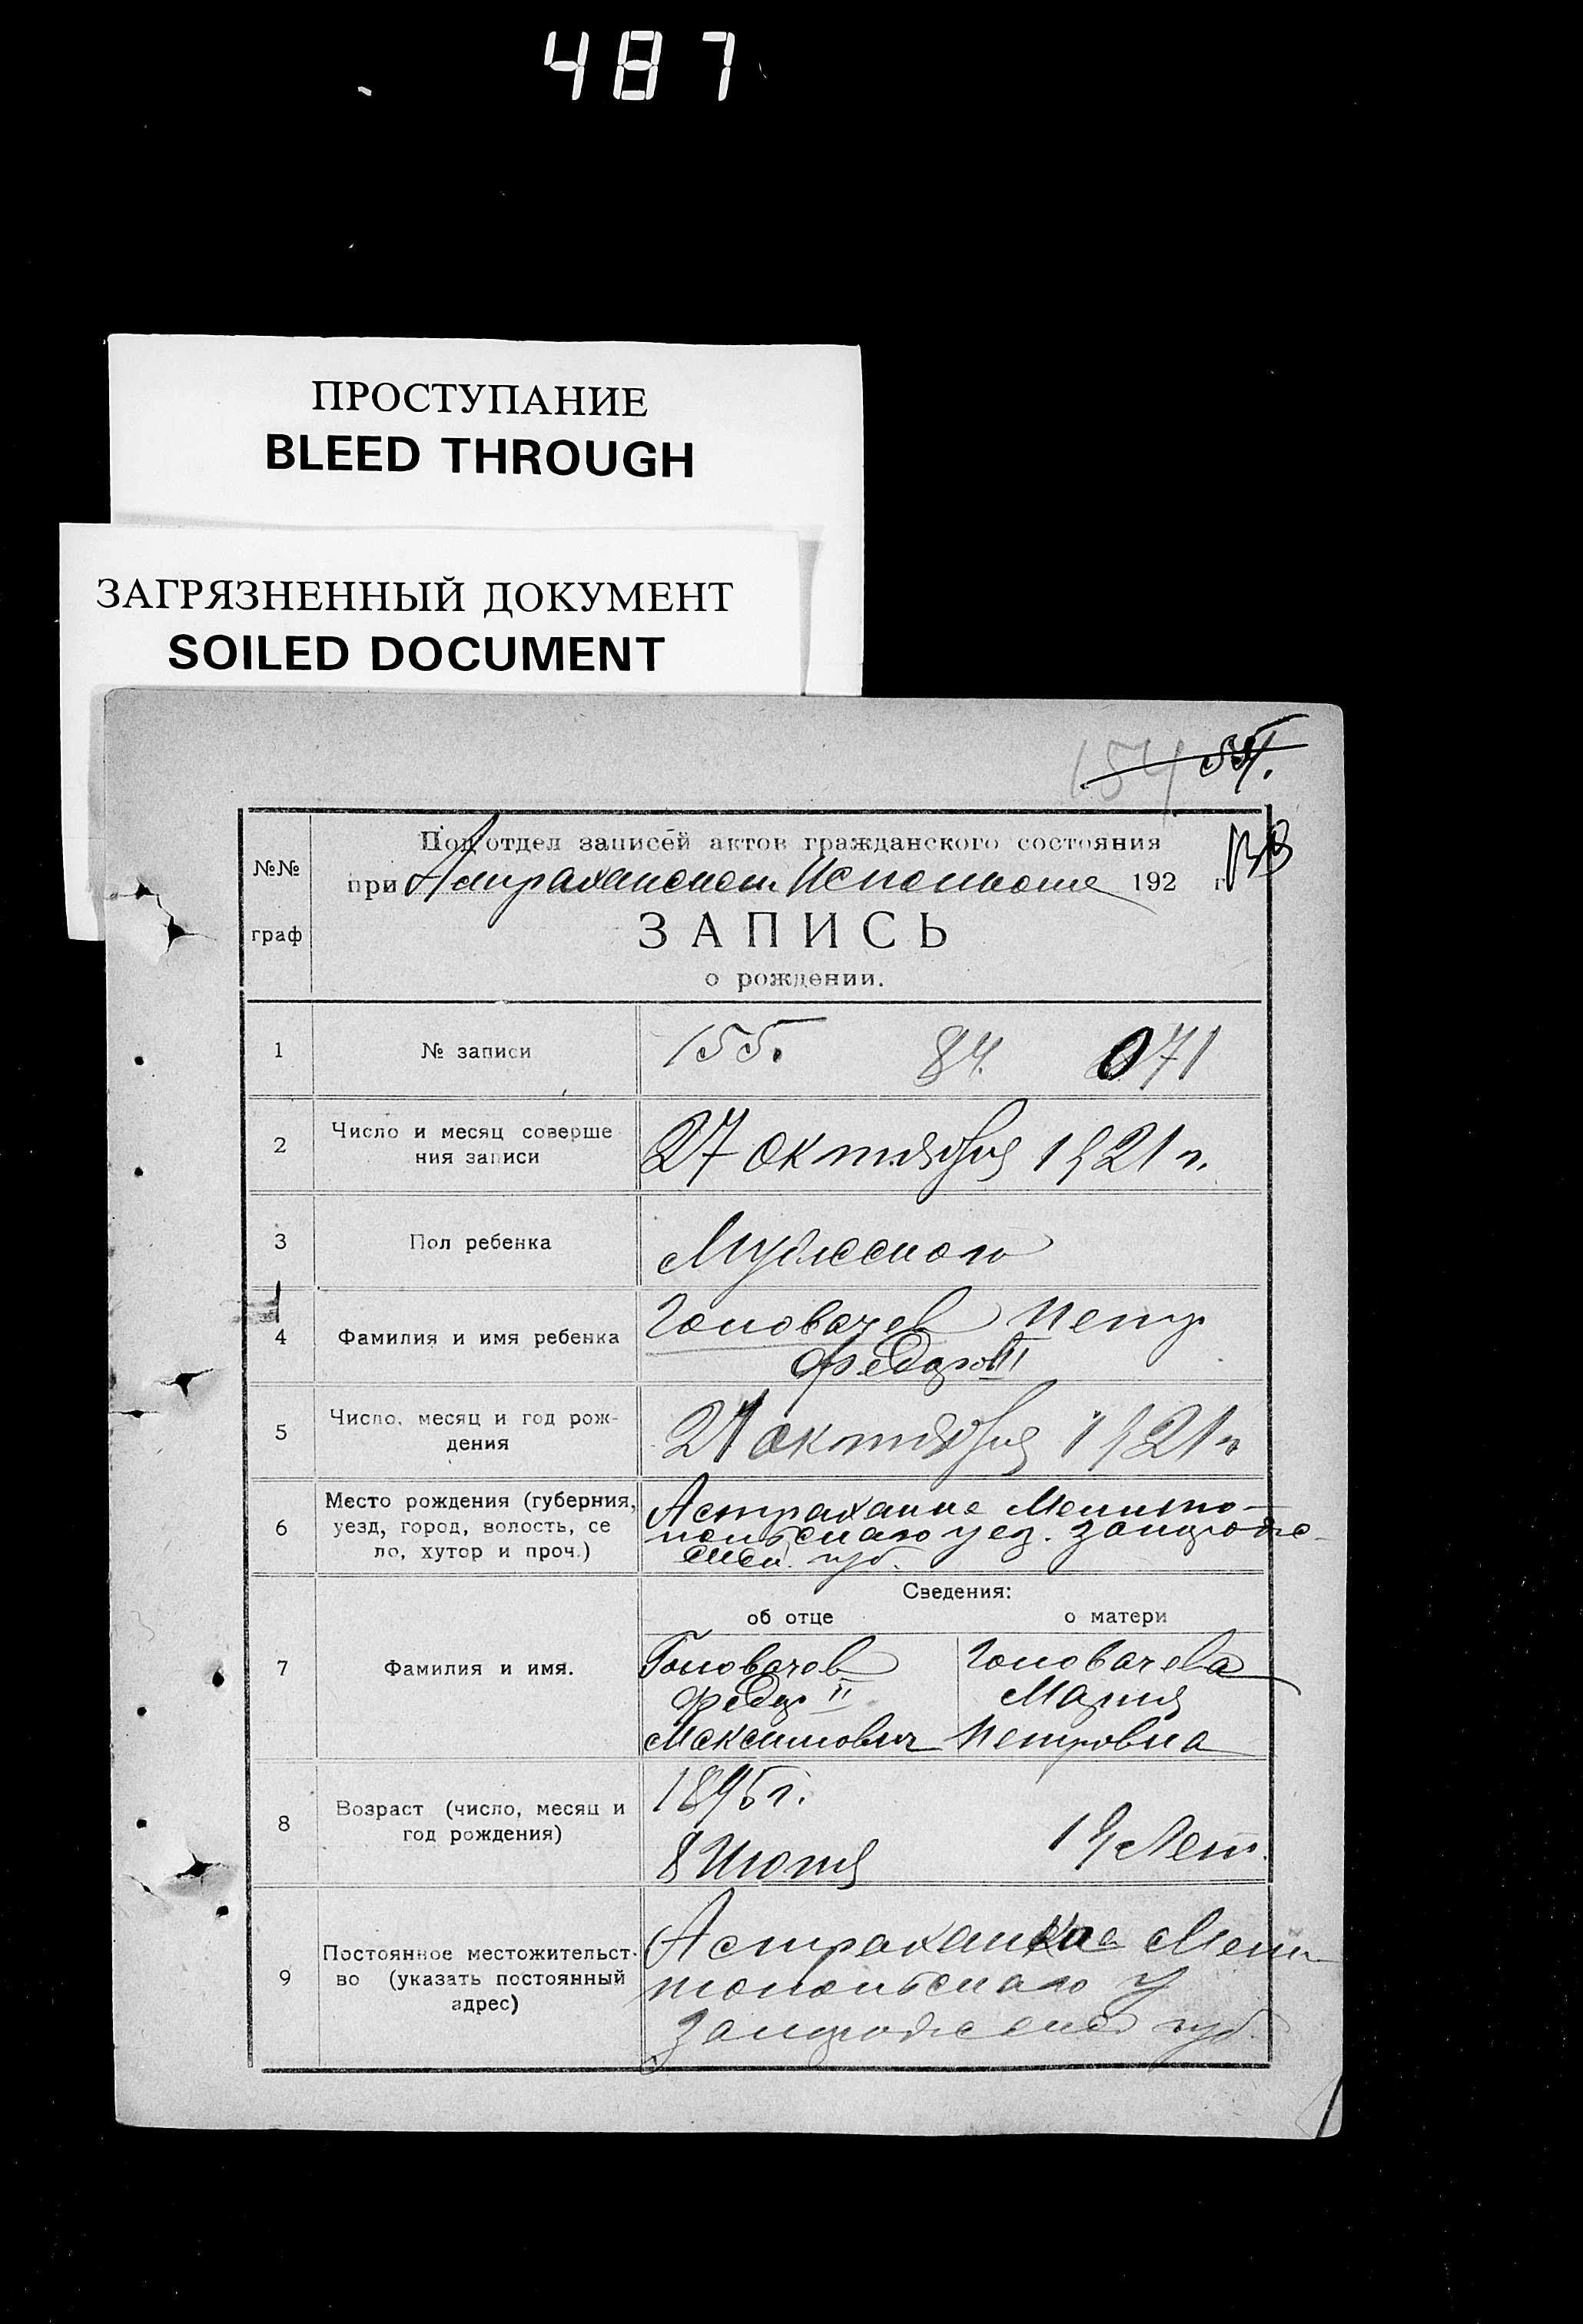 487
ПРОСТУПАНИЕ
BLEED THROUGH
ЗАГРЯЗНЕННЫЙ ДОКУМЕНТ
SOILED DOCUMENT
154
№№ граф
Подотдел записей актов гражданского состояния
при Астраханском Исполкоме 192 г
ЗАПИСЬ
о рождении.
1 № записи 155. 84. 071
2 Число и месяц соверше
ния записи 27 октября 1921 г.
3 Пол ребенка Мужского
4 Фамилия и имя ребенка Головачев Петр
Федоров II
5 Число, месяц и год рож-
дения 21 октября 1921 г
6 Место рождения (губерния,
уезд, город, волость, се
ло, хутор и проч.)
Астраханка Мелито-
польскаго уез. Запорож-
ской губ.
Сведения:
об отце о матери
7 Фамилия и имя.
Головачев Головачева
Федор II Мария
Максимович Петровна
8 Возраст (число, месяц и
год рождения)
1895 г.
8 Июня 19 лет.
9 Постоянное местожительст-
во (указать постоянный
адрес)
Астраханка Мели
топольскаго у
Запорожской губ.